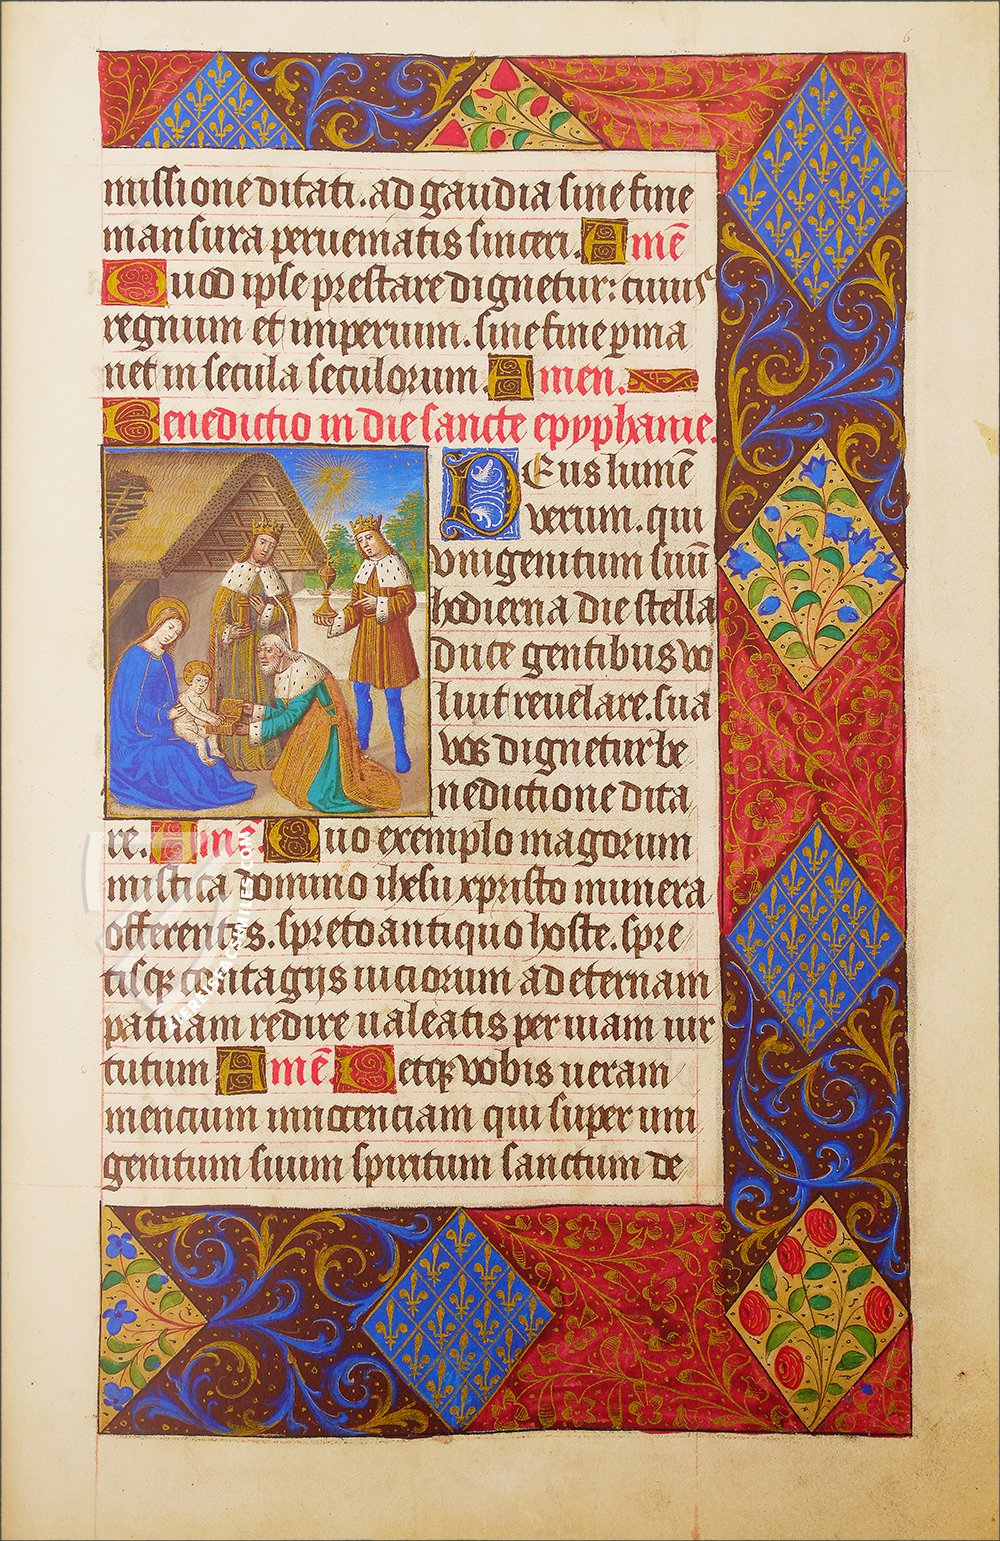 6
missione ditati. ad gaudia sine fine
mansura perueniatis sinceri. Amē
Quod ipse prestare dignetur: cuius
regnum et imperium. sine fine ꝑma
net in secula seculorum. Amen.
Benedictio in die sancte epyphanie.
DEus lumē
verum. qui
vnigenitum suū
hodierna die stella
duce gentibus vo
luit reuelare. sua
vos dignetur be
nedictione dita
re. Amē. Quo exemplo magorum
mistica domino ihesu xpristo munera
offerentes. spreto antiquo hoste. spre
tisqꝫ contagijs viciorum ad eternam
patriam redire ualeatis per uiam uir
tutum Amē. Detqꝫ vobis ueram
mencium innocenciam qui super uni
genitum suum spiritum sanctum de
ZIEREIS FACSIMILES.COM